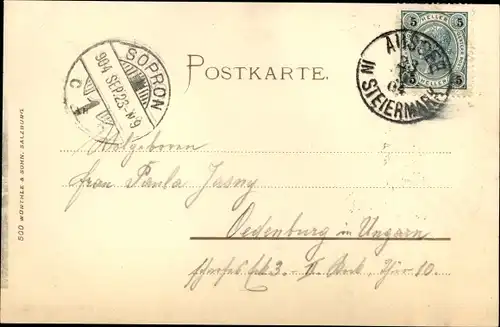 5 HELLER 5
AUSSEE
IN STEIERMARK
SOPRON
904 SEP 23 N 9
C 1
POSTKARTE.
Wolgeboren
Frau Paula Jasny
Oedenburg in Ungarn
3. II. Thür 10.
500 WÜRTHLE & SOHN, SALZBURG.